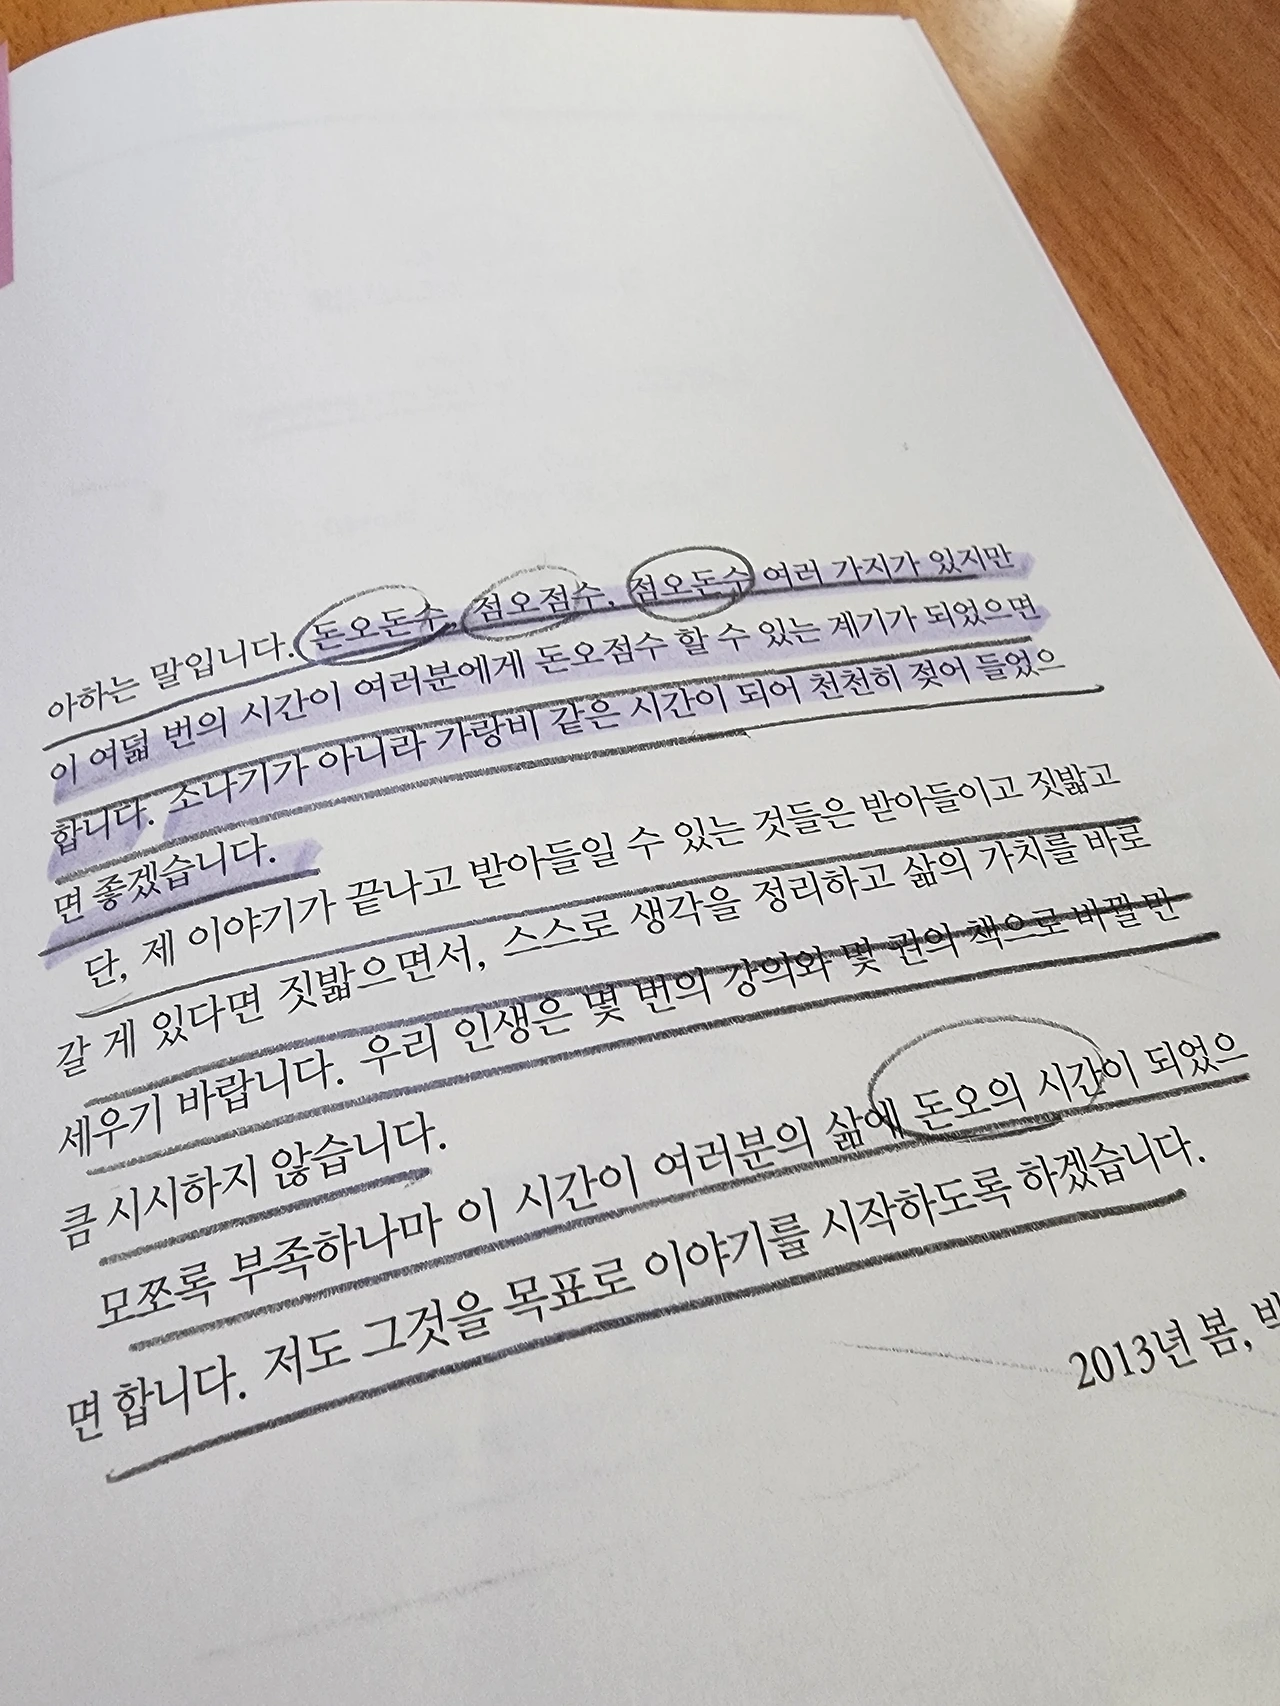 아하는 말입니다. 돈오돈수, 점오점수, 점오돈수 여러 가지가 있지만
이 여덟 번의 시간이 여러분에게 돈오점수 할 수 있는 계기가 되었으면
합니다. 소나기가 아니라 가랑비 같은 시간이 되어 천천히 젖어 들었으
면 좋겠습니다.
단, 제 이야기가 끝나고 받아들일 수 있는 것들은 받아들이고 짓밟고
갈 게 있다면 짓밟으면서, 스스로 생각을 정리하고 삶의 가치를 바로
세우기 바랍니다. 우리 인생은 몇 번의 강의와 몇 권의 책으로 바뀔 만
큼 시시하지 않습니다.
모쪼록 부족하나마 이 시간이 여러분의 삶에 돈오의 시간이 되었으
면 합니다. 저도 그것을 목표로 이야기를 시작하도록 하겠습니다.
2013년 봄,